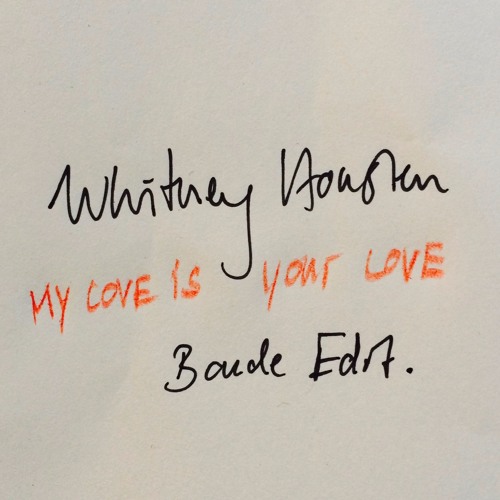 Whitney Houston
MY LOVE IS YOUR LOVE
Baude Edit.